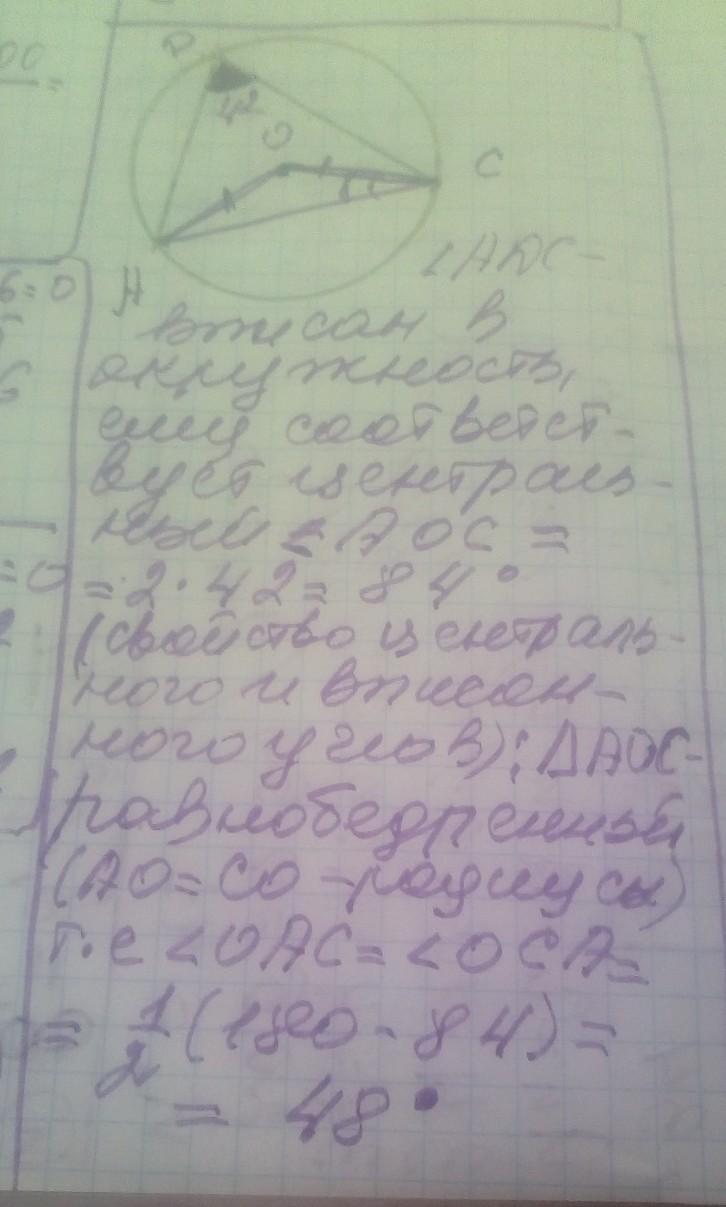 D
42
O
C
A
∠ADC -
вписан в
окружность,
ему соответст-
вует централь-
ный ∠AOC =
= 2·42 = 84°
(свойство централь-
ного и вписан-
ного углов); ΔAOC -
равнобедренный
(AO = CO - радиусы)
т.е ∠OAC = ∠OCA =
= 1/2 (180 - 84) =
= 48°
00
=
6=0
6
=0